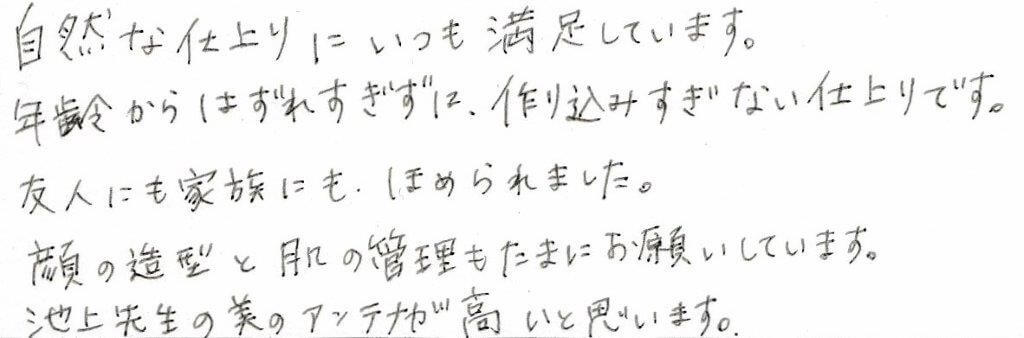 自然な仕上りにいつも満足しています。
年齢からはずれすぎずに、作り込みすぎない仕上りです。
友人にも家族にも、ほめられました。
顔の造型と肌の管理もたまにお願いしています。
池上先生の美のアンテナが高いと思います。